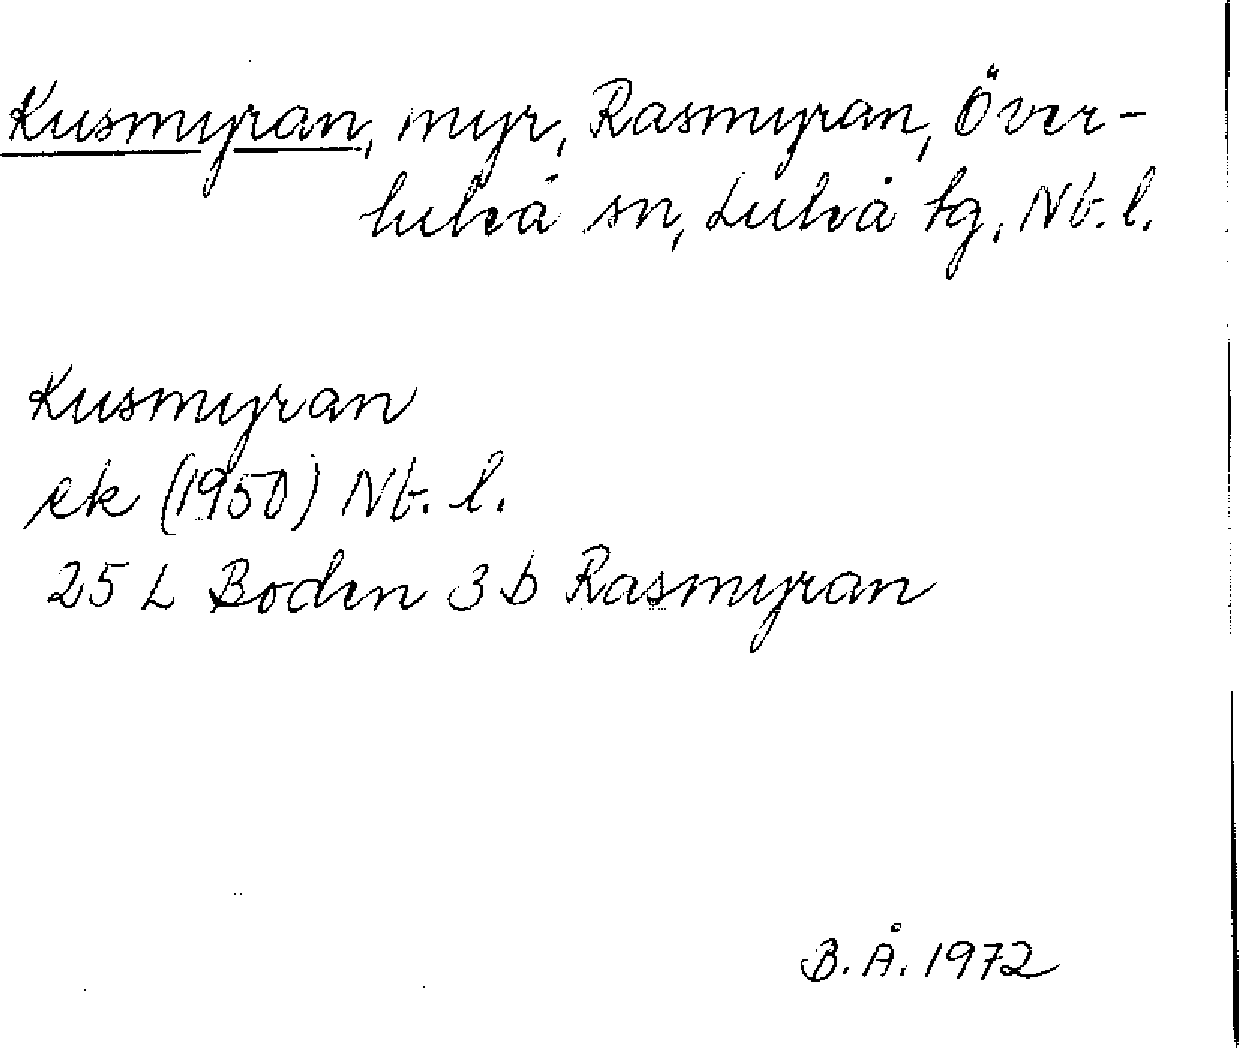 Kusmyran, myr, Rasmyran, Över-
luleå sn, Luleå tg, Nb. l.
Kusmyran
ek (1950) Nb. l.
25 L Boden 3 b Rasmyran
B. Å. 1972